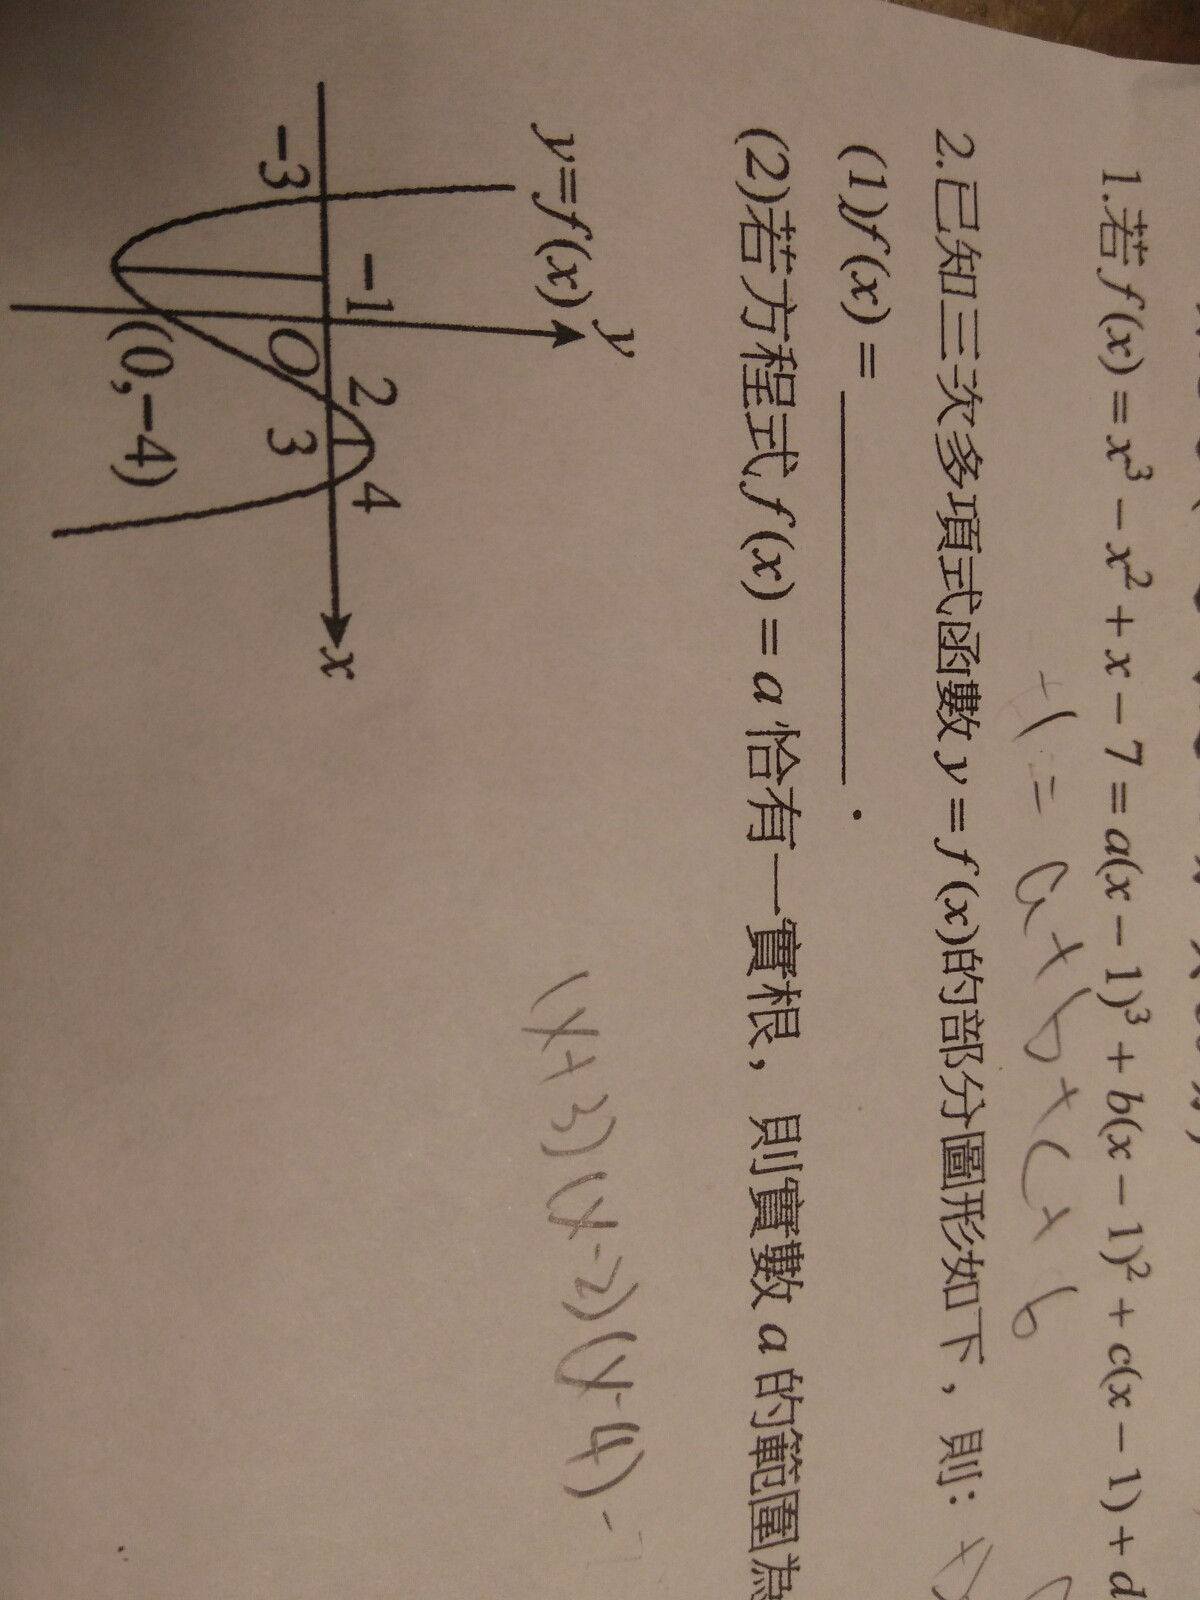 1.若f(x)=x³-x²+x-7=a(x-1)³+b(x-1)²+c(x-1)+d
-1=a+b+c+b
2.已知三次多項式函數y=f(x)的部分圖形如下，則：
(1)f(x)=________.
(2)若方程式f(x)=a恰有一實根，則實數a的範圍為
(x+3)(x-2)(x-4)
y
y=f(x)
-1 2 4
x
-3 O 3
(0,-4)